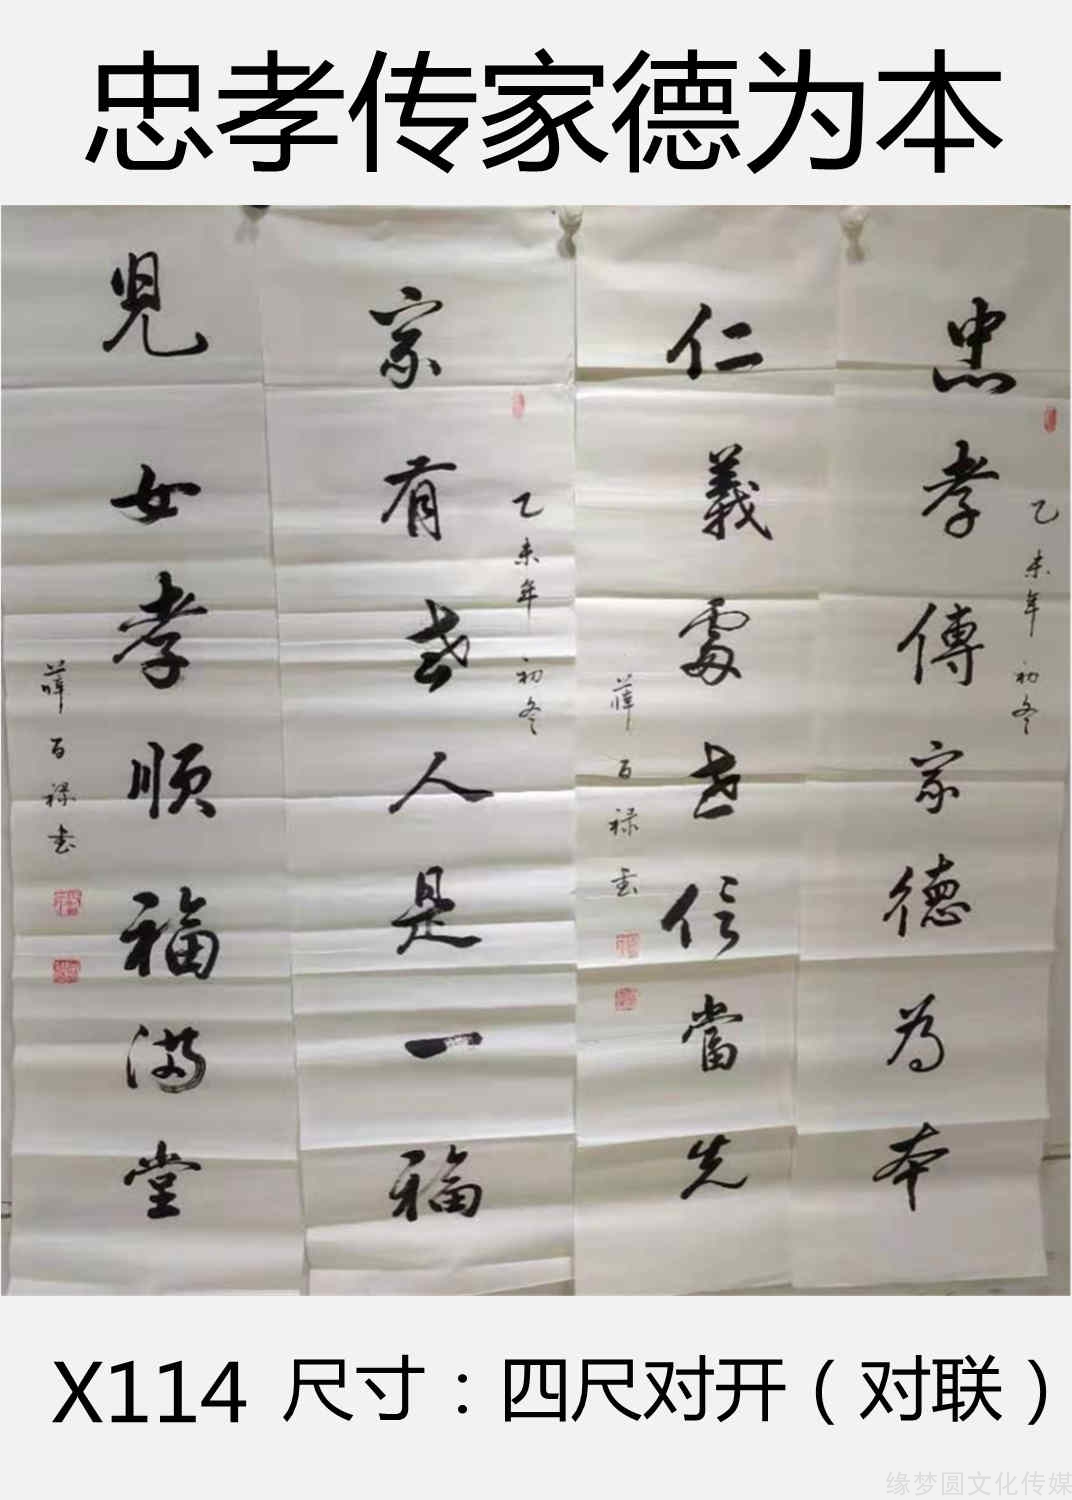 忠孝传家德为本
忠孝傳家德為本
乙未年初冬
仁義處世信當先
薛百禄書
家有老人是一福
乙未年初冬
兒女孝順福满堂
薛百禄書
X114 尺寸：四尺对开（对联）
缘梦圆文化传媒